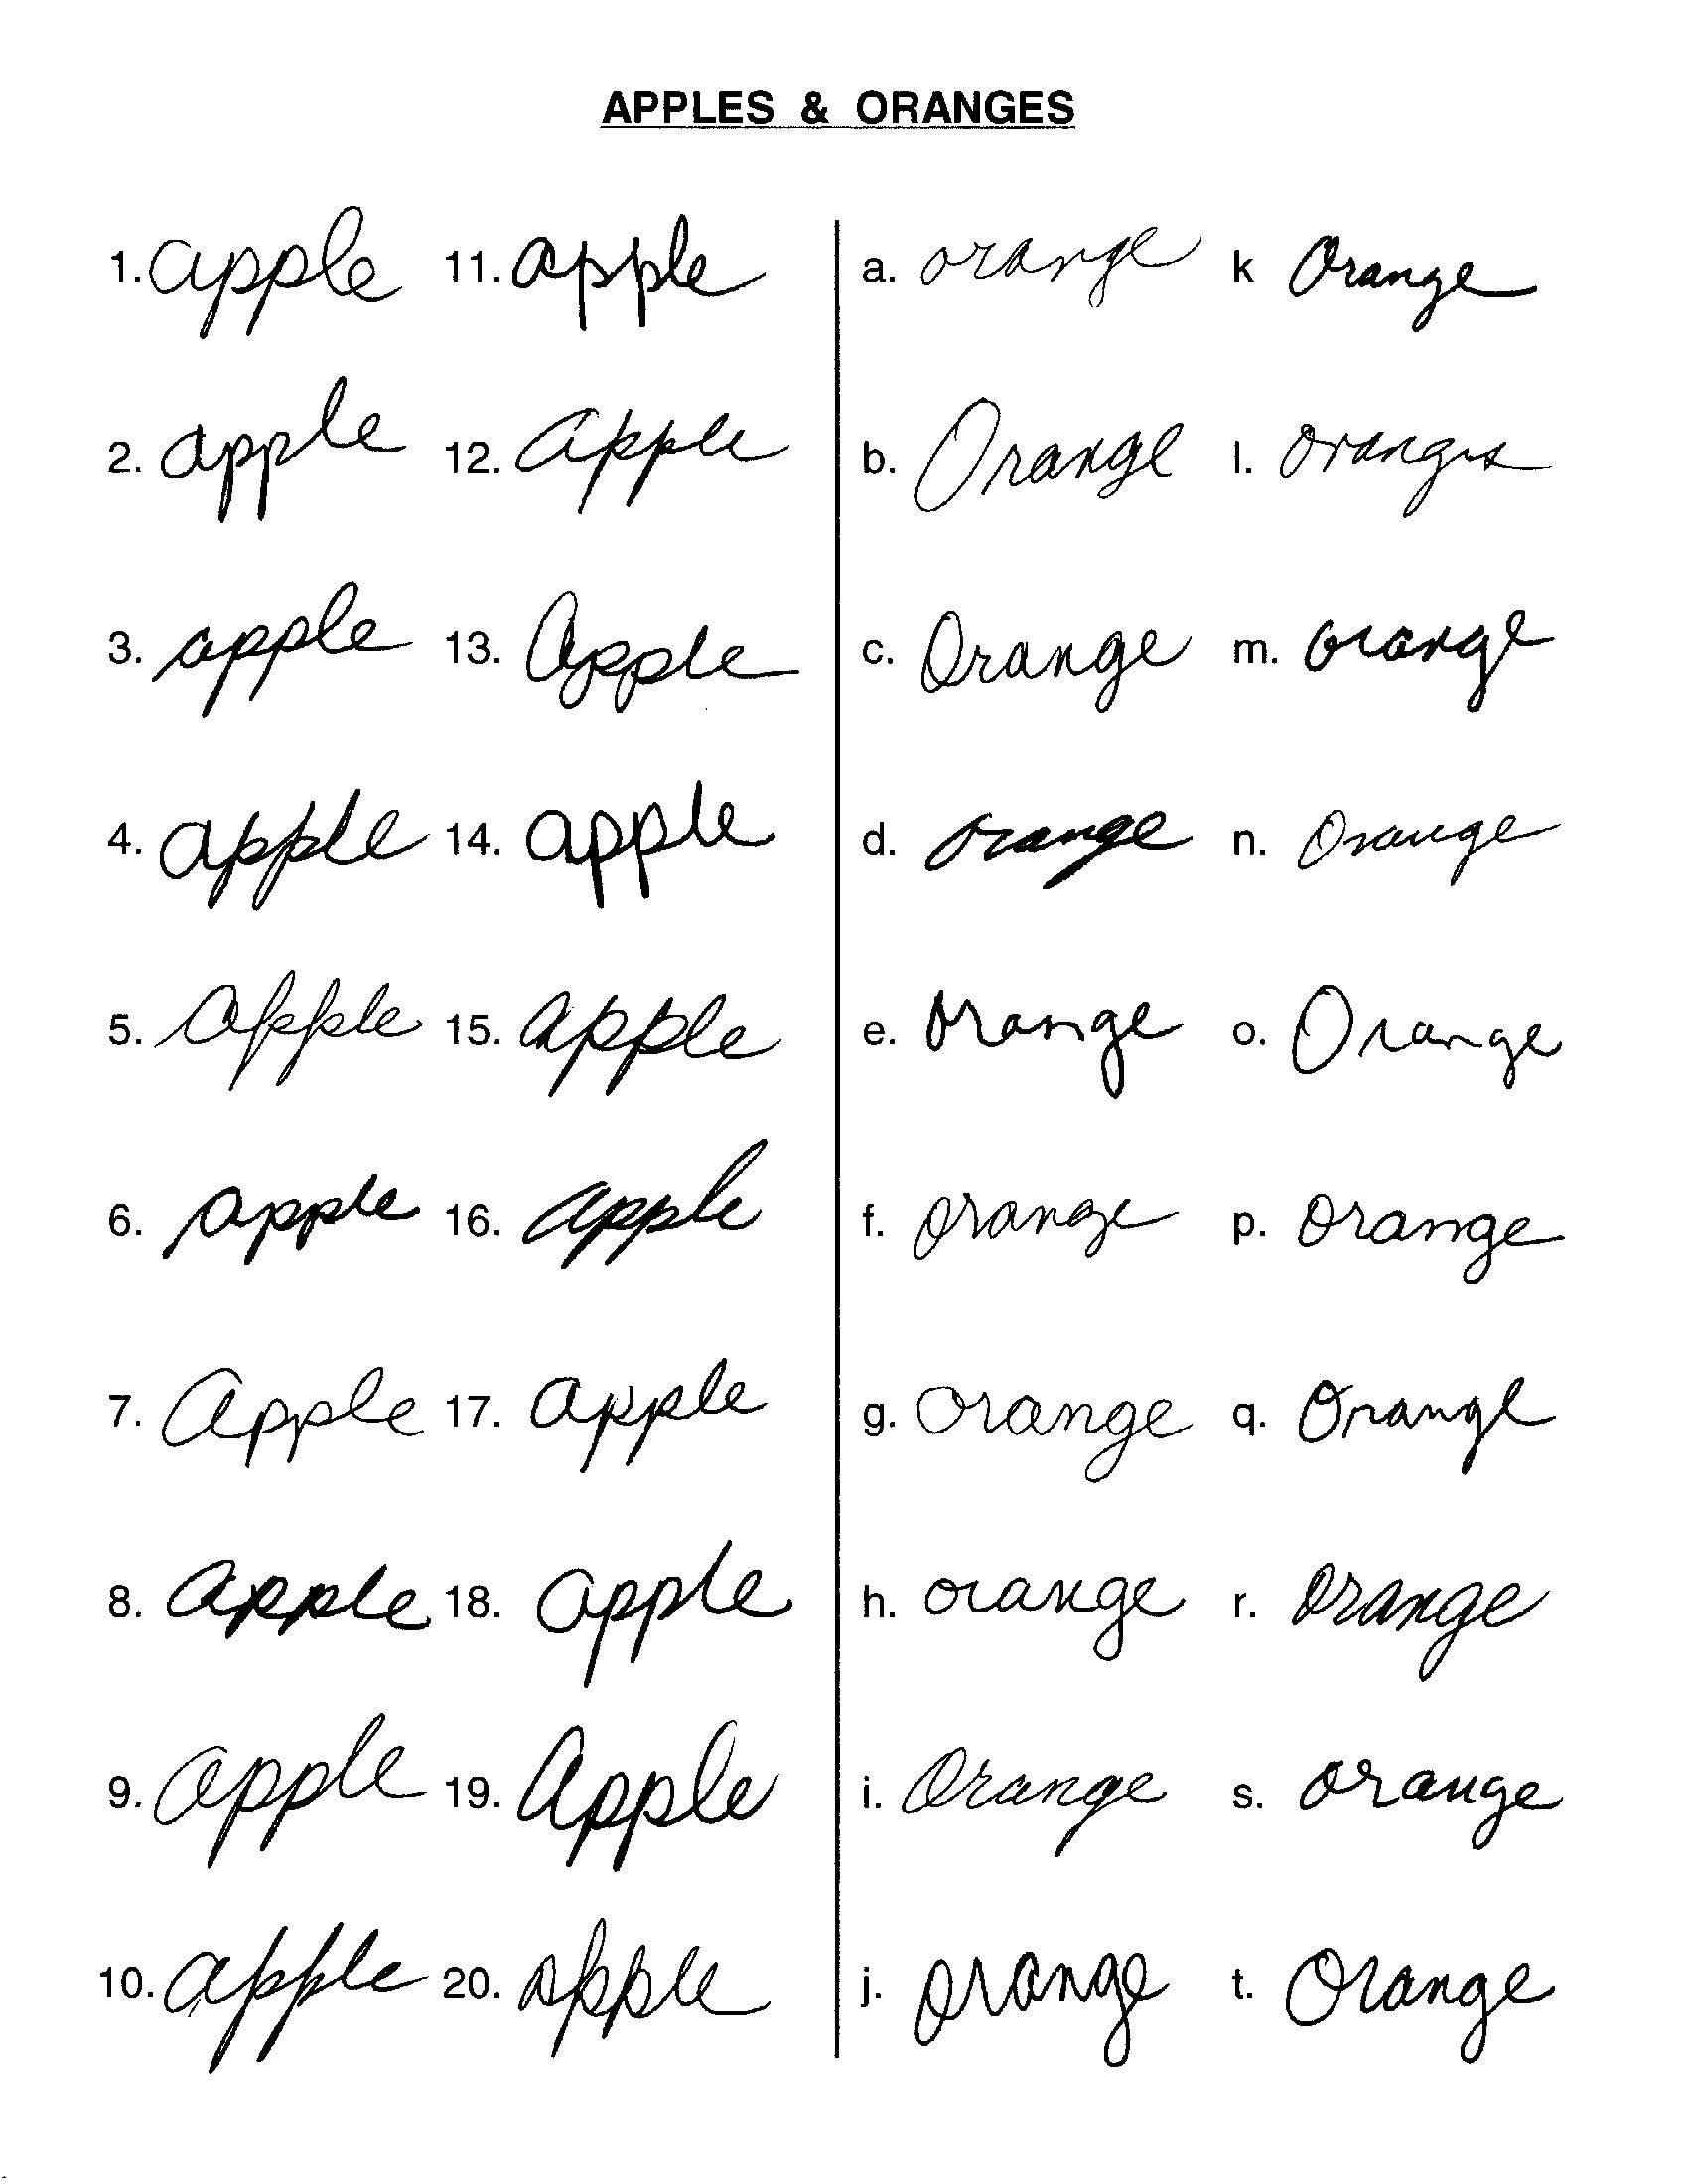 APPLES & ORANGES
1. apple 11. apple a. orange k Orange
2. apple 12. apple b. Orange l. oranges
3. apple 13. Apple c. Orange m. orange
4. apple 14. apple d. orange n. Orange
5. apple 15. apple e. orange o. Orange
6. apple 16. apple f. orange p. orange
7. apple 17. apple g. orange q. Orange
8. apple 18. apple h. orange r. orange
9. apple 19. Apple i. Orange s. orange
10. apple 20. apple j. orange t. Orange